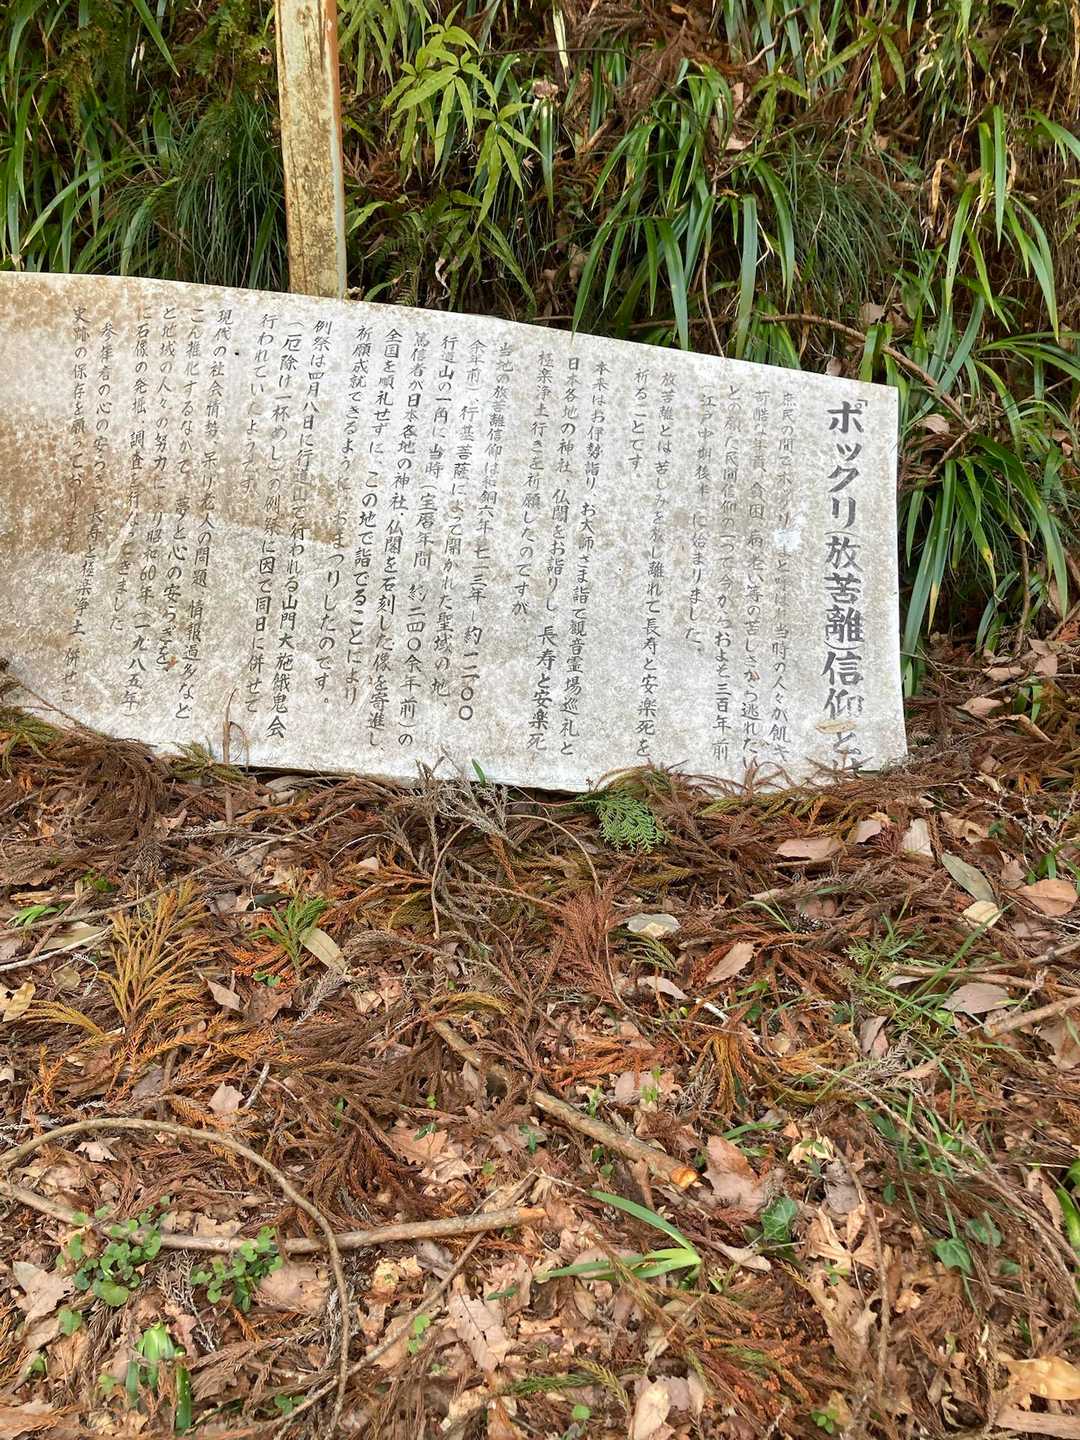 「ボックリ(放苦離)信仰と
庶民の間でポックリさまと呼ばれ当時の人々が飢キ
苛酷な年貢、貧困、病、老い等の苦しさから逃れたい
との願った民間信仰の一つで今からおよそ三百年前
(江戸中期後半)に始まりました。
放苦離とは苦しみを放し離れて長寿と安楽死を
祈ることです。
本来はお伊勢詣り、お大師さま詣で観音霊場巡礼と
日本各地の神社、仏閣をお詣りし、長寿と安楽死
極楽浄土行きを祈願したのですが、
当地の放苦離信仰は和銅六年(七一三年−約一二〇〇
余年前)、行基菩薩によって開かれた聖域の地、
行道山の一角に当時(宝暦年間 約二四〇余年前)の
篤信者が日本各地の神社、仏閣を石刻した像を寄進し、
全国を順礼せずに、この地で詣でることにより
祈願成就できるように、おまつりしたのです。
例祭は四月八日に行道山で行われる山門大施餓鬼会
(厄除け一杯めし)の例祭に因で同日に併せて
行われていたようです。
現代の社会情勢、呆け老人の問題、情報過多など
こん推化するなかで、夢と心の安らぎを、
と地域の人々の努力により昭和60年(一九八五年)
に石像の発掘、調査を行なってきました。
参拝者の心の安らぎ、長寿と極楽浄土、併せて
史跡の保存を願っております。